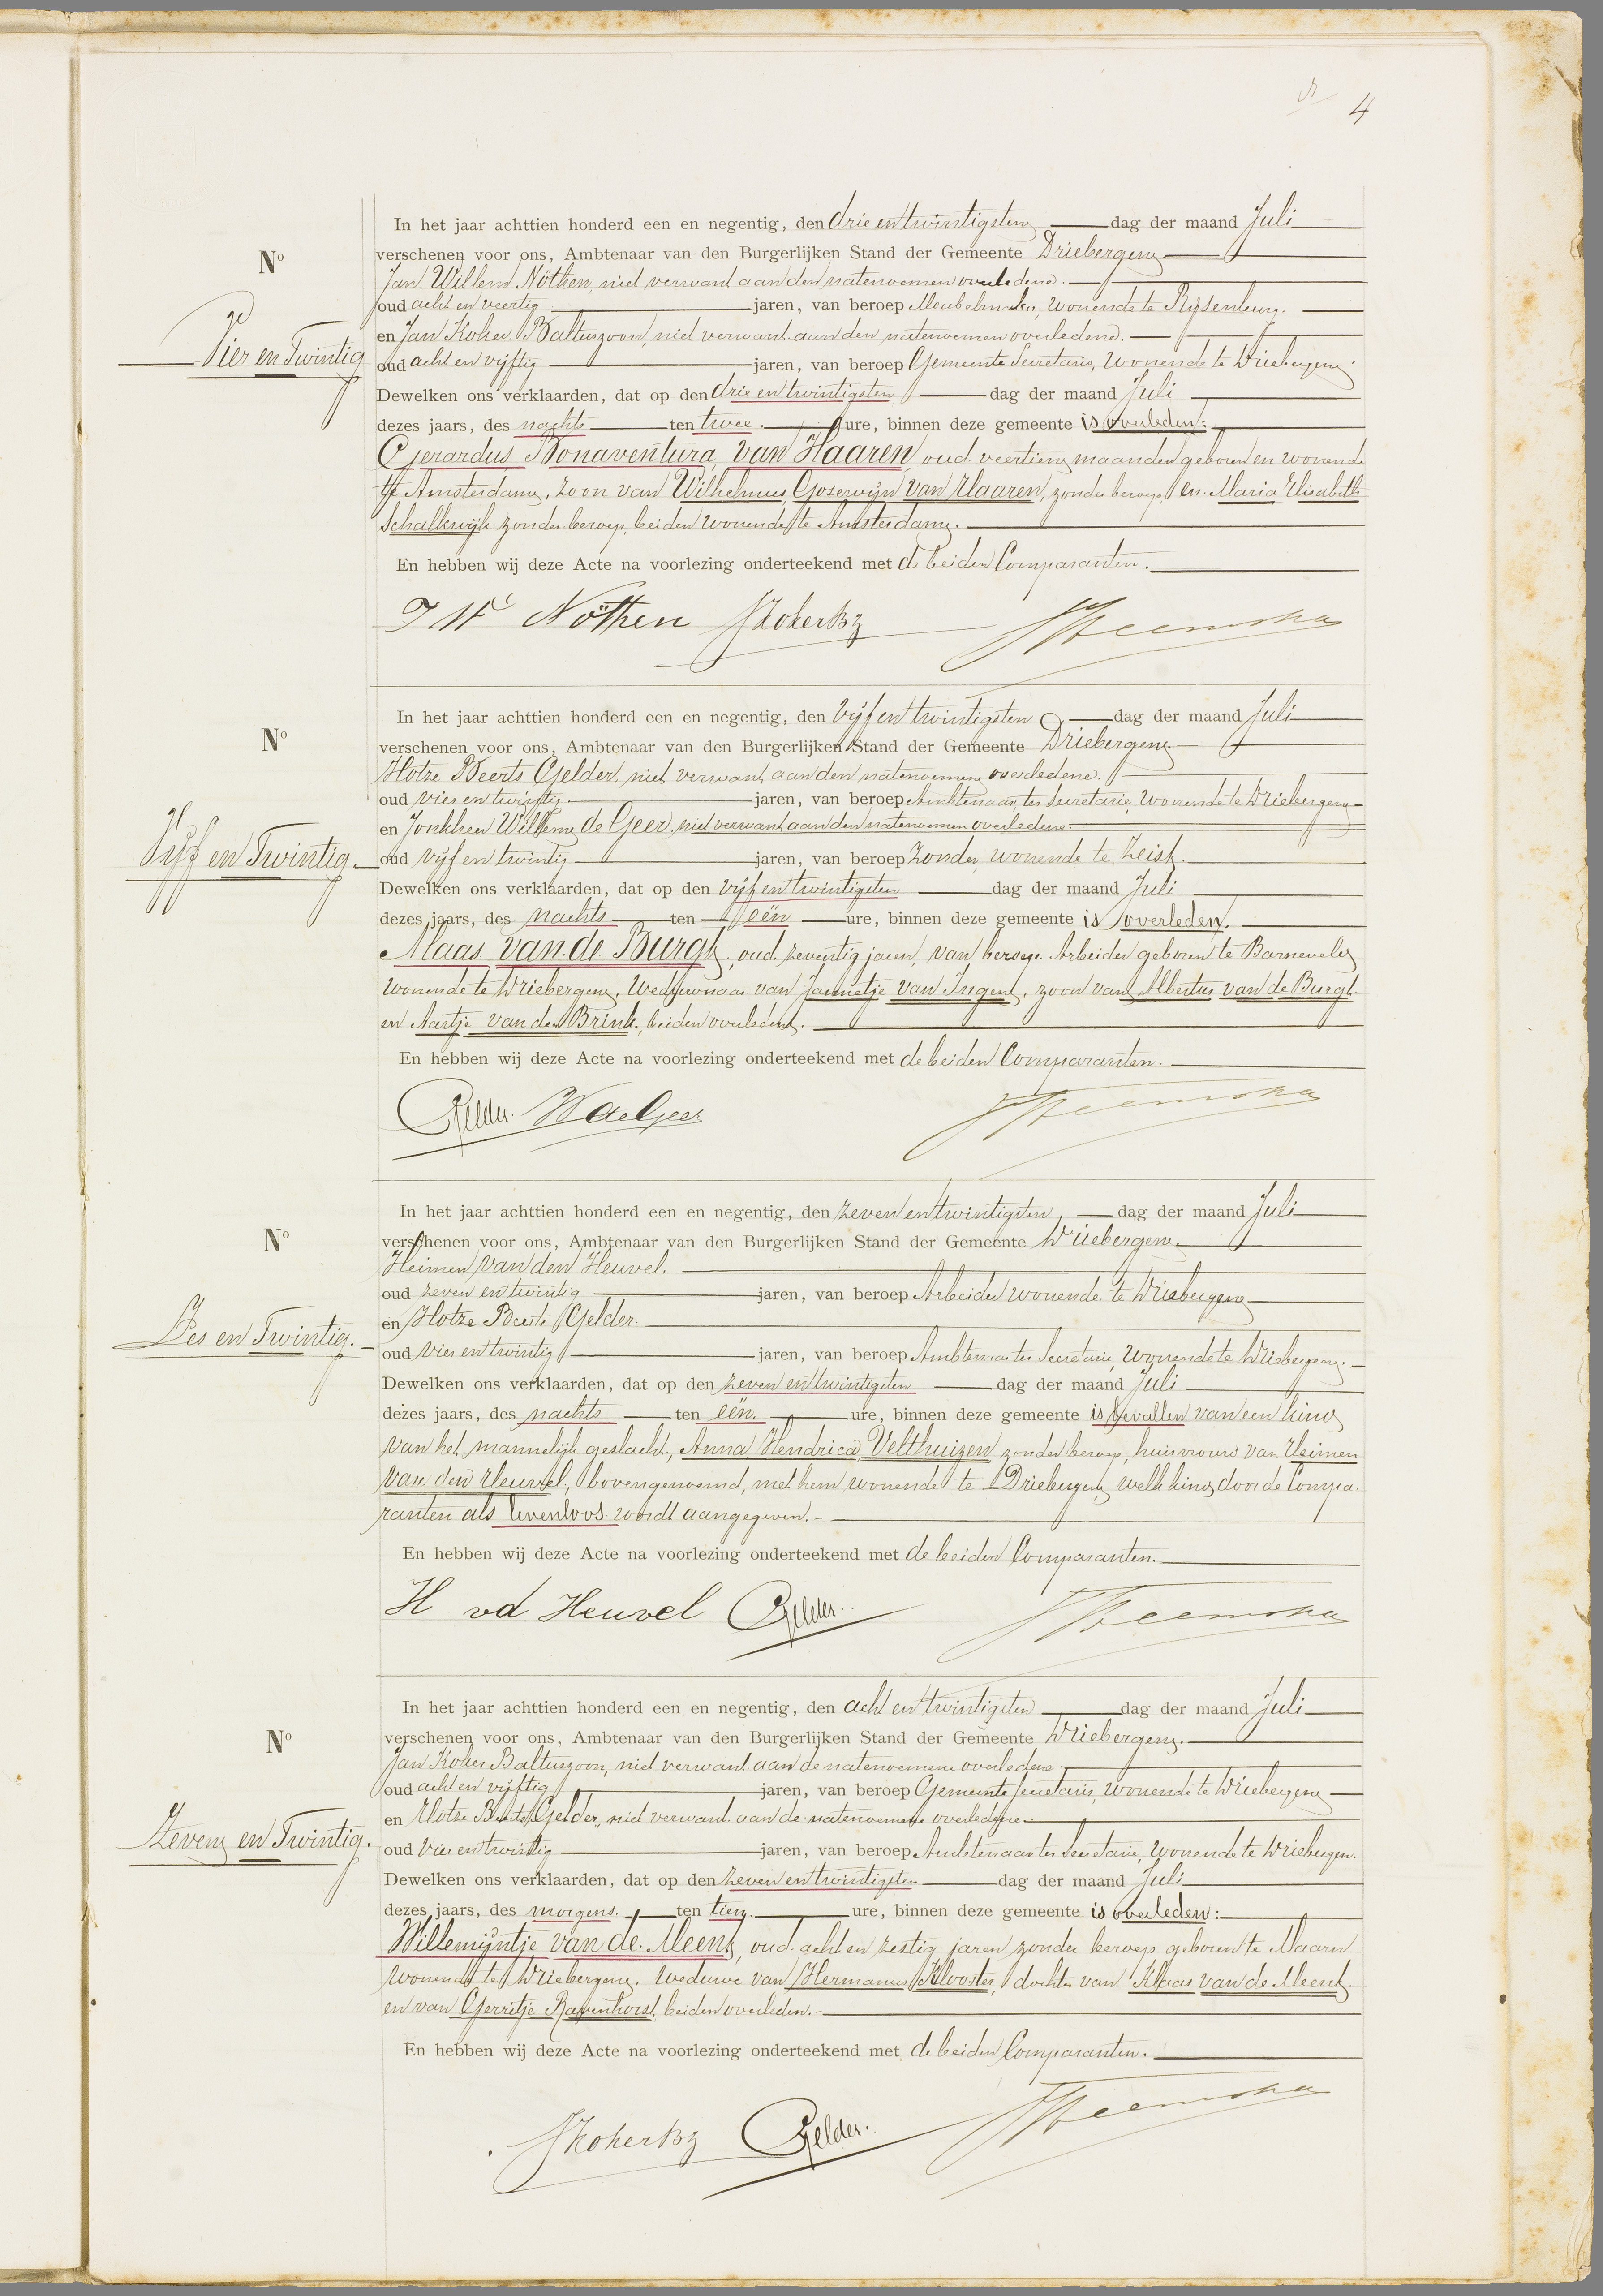 4
In het jaar achttien honderd een en negentig, den drie en twintigsten dag der maand Juli
No
verschenen voor ons, Ambtenaar van den Burgerlijken Stand der Gemeente Driebergen
Jan Willem Nöthen, niet verwant aan den natenoemen overledene.
oud acht en veertig jaren, van beroep Meubelmaker, wonende te Rijsenburg.
Vier en Twintig
en Jan Koker Baltuszoon, niet verwant aan den natenoemen overledene.
oud acht en vijftig jaren, van beroep Gemeente Secretaris, wonende te Driebergen.
Dewelken ons verklaarden, dat op den drie en twintigsten dag der maand Juli
dezes jaars, des nachts ten twee ure, binnen deze gemeente is overleden:
Gerardus Bonaventura van Haaren oud veertien maanden geboren en wonende
te Amsterdam, zoon van Wilhelmus Goswijn van Haaren, zonder beroep, en Maria Elisabeth
Schalkwijk zonder beroep, beiden wonende te Amsterdam.
En hebben wij deze Acte na voorlezing onderteekend met de beiden Comparanten.
J W Nöthen JKokerBz
In het jaar achttien honderd een en negentig, den vijf en twintigsten dag der maand Juli
No
verschenen voor ons, Ambtenaar van den Burgerlijken Stand der Gemeente Driebergen
Hotze Beerts Gelder, niet verwant aan den natenoemen overledene.
oud vier en twintig jaren, van beroep Ambtenaar ter Secretarie, wonende te Driebergen
en Jonkheer Willem de Geer, niet verwant aan den natenoemen overledene.
Vijf en Twintig.
oud vijf en twintig jaren, van beroep Zonder, wonende te Zeist.
Dewelken ons verklaarden, dat op den vijf en twintigsten dag der maand Juli
dezes jaars, des nachts ten eën ure, binnen deze gemeente is overleden.
Maas van de Burgt, oud zeventig jaren, van beroep Arbeider geboren te Barneveld
wonende te Driebergen, Weduwnaar van Jannetje van Ingen, zoon van Albertus van de Burgt
en Aartje van den Brink, beiden overleden.
En hebben wij deze Acte na voorlezing onderteekend met de beiden Comparanten.
Gelder. WdeGeer
In het jaar achttien honderd een en negentig, den zeven en twintigsten dag der maand Juli
No
verschenen voor ons, Ambtenaar van den Burgerlijken Stand der Gemeente Driebergen.
Heimen van den Heuvel.
oud zeven en twintig jaren, van beroep Arbeider wonende te Driebergen
en Hotze Beerts Gelder.
Zes en Twintig.
oud vier en twintig jaren, van beroep Ambtenaar ter Secretarie, wonende te Driebergen.
Dewelken ons verklaarden, dat op den zeven en twintigsten dag der maand Juli
dezes jaars, des nachts ten eën. ure, binnen deze gemeente is bevallen van een kind
van het mannelijk geslacht, Anna Hendrica Velthuizen zonder beroep, huisvrouw van Heimen
van den Heuvel, bovengenoemd, met hem wonende te Driebergen, welk kind door de Compa-
ranten als levenloos wordt aangegeven.
En hebben wij deze Acte na voorlezing onderteekend met de beiden Comparanten.
H vd Heuvel Gelder.
In het jaar achttien honderd een en negentig, den acht en twintigsten dag der maand Juli
No
verschenen voor ons, Ambtenaar van den Burgerlijken Stand der Gemeente Driebergen.
Jan Koker Baltuszoon, niet verwant aan de natenoemene overledene.
oud acht en vijftig jaren, van beroep Gemeente Secretaris, wonende te Driebergen
en Hotze Beerts Gelder, niet verwant aan de natenoemene overledene
Zeven en Twintig.
oud vier en twintig jaren, van beroep Ambtenaar ter Secretarie, wonende te Driebergen.
Dewelken ons verklaarden, dat op den zeven en twintigsten dag der maand Juli
dezes jaars, des morgens. ten tien. ure, binnen deze gemeente is overleden:
Willemijntje van de Meent, oud acht en zestig jaren zonder beroep geboren te Maarn
wonende te Driebergen, weduwe van Hermanus Klooster, dochter van Klaas van de Meent
en van Gerritje Ravenhorst, beiden overleden.
En hebben wij deze Acte na voorlezing onderteekend met de beiden Comparanten.
JKokerBz Gelder.